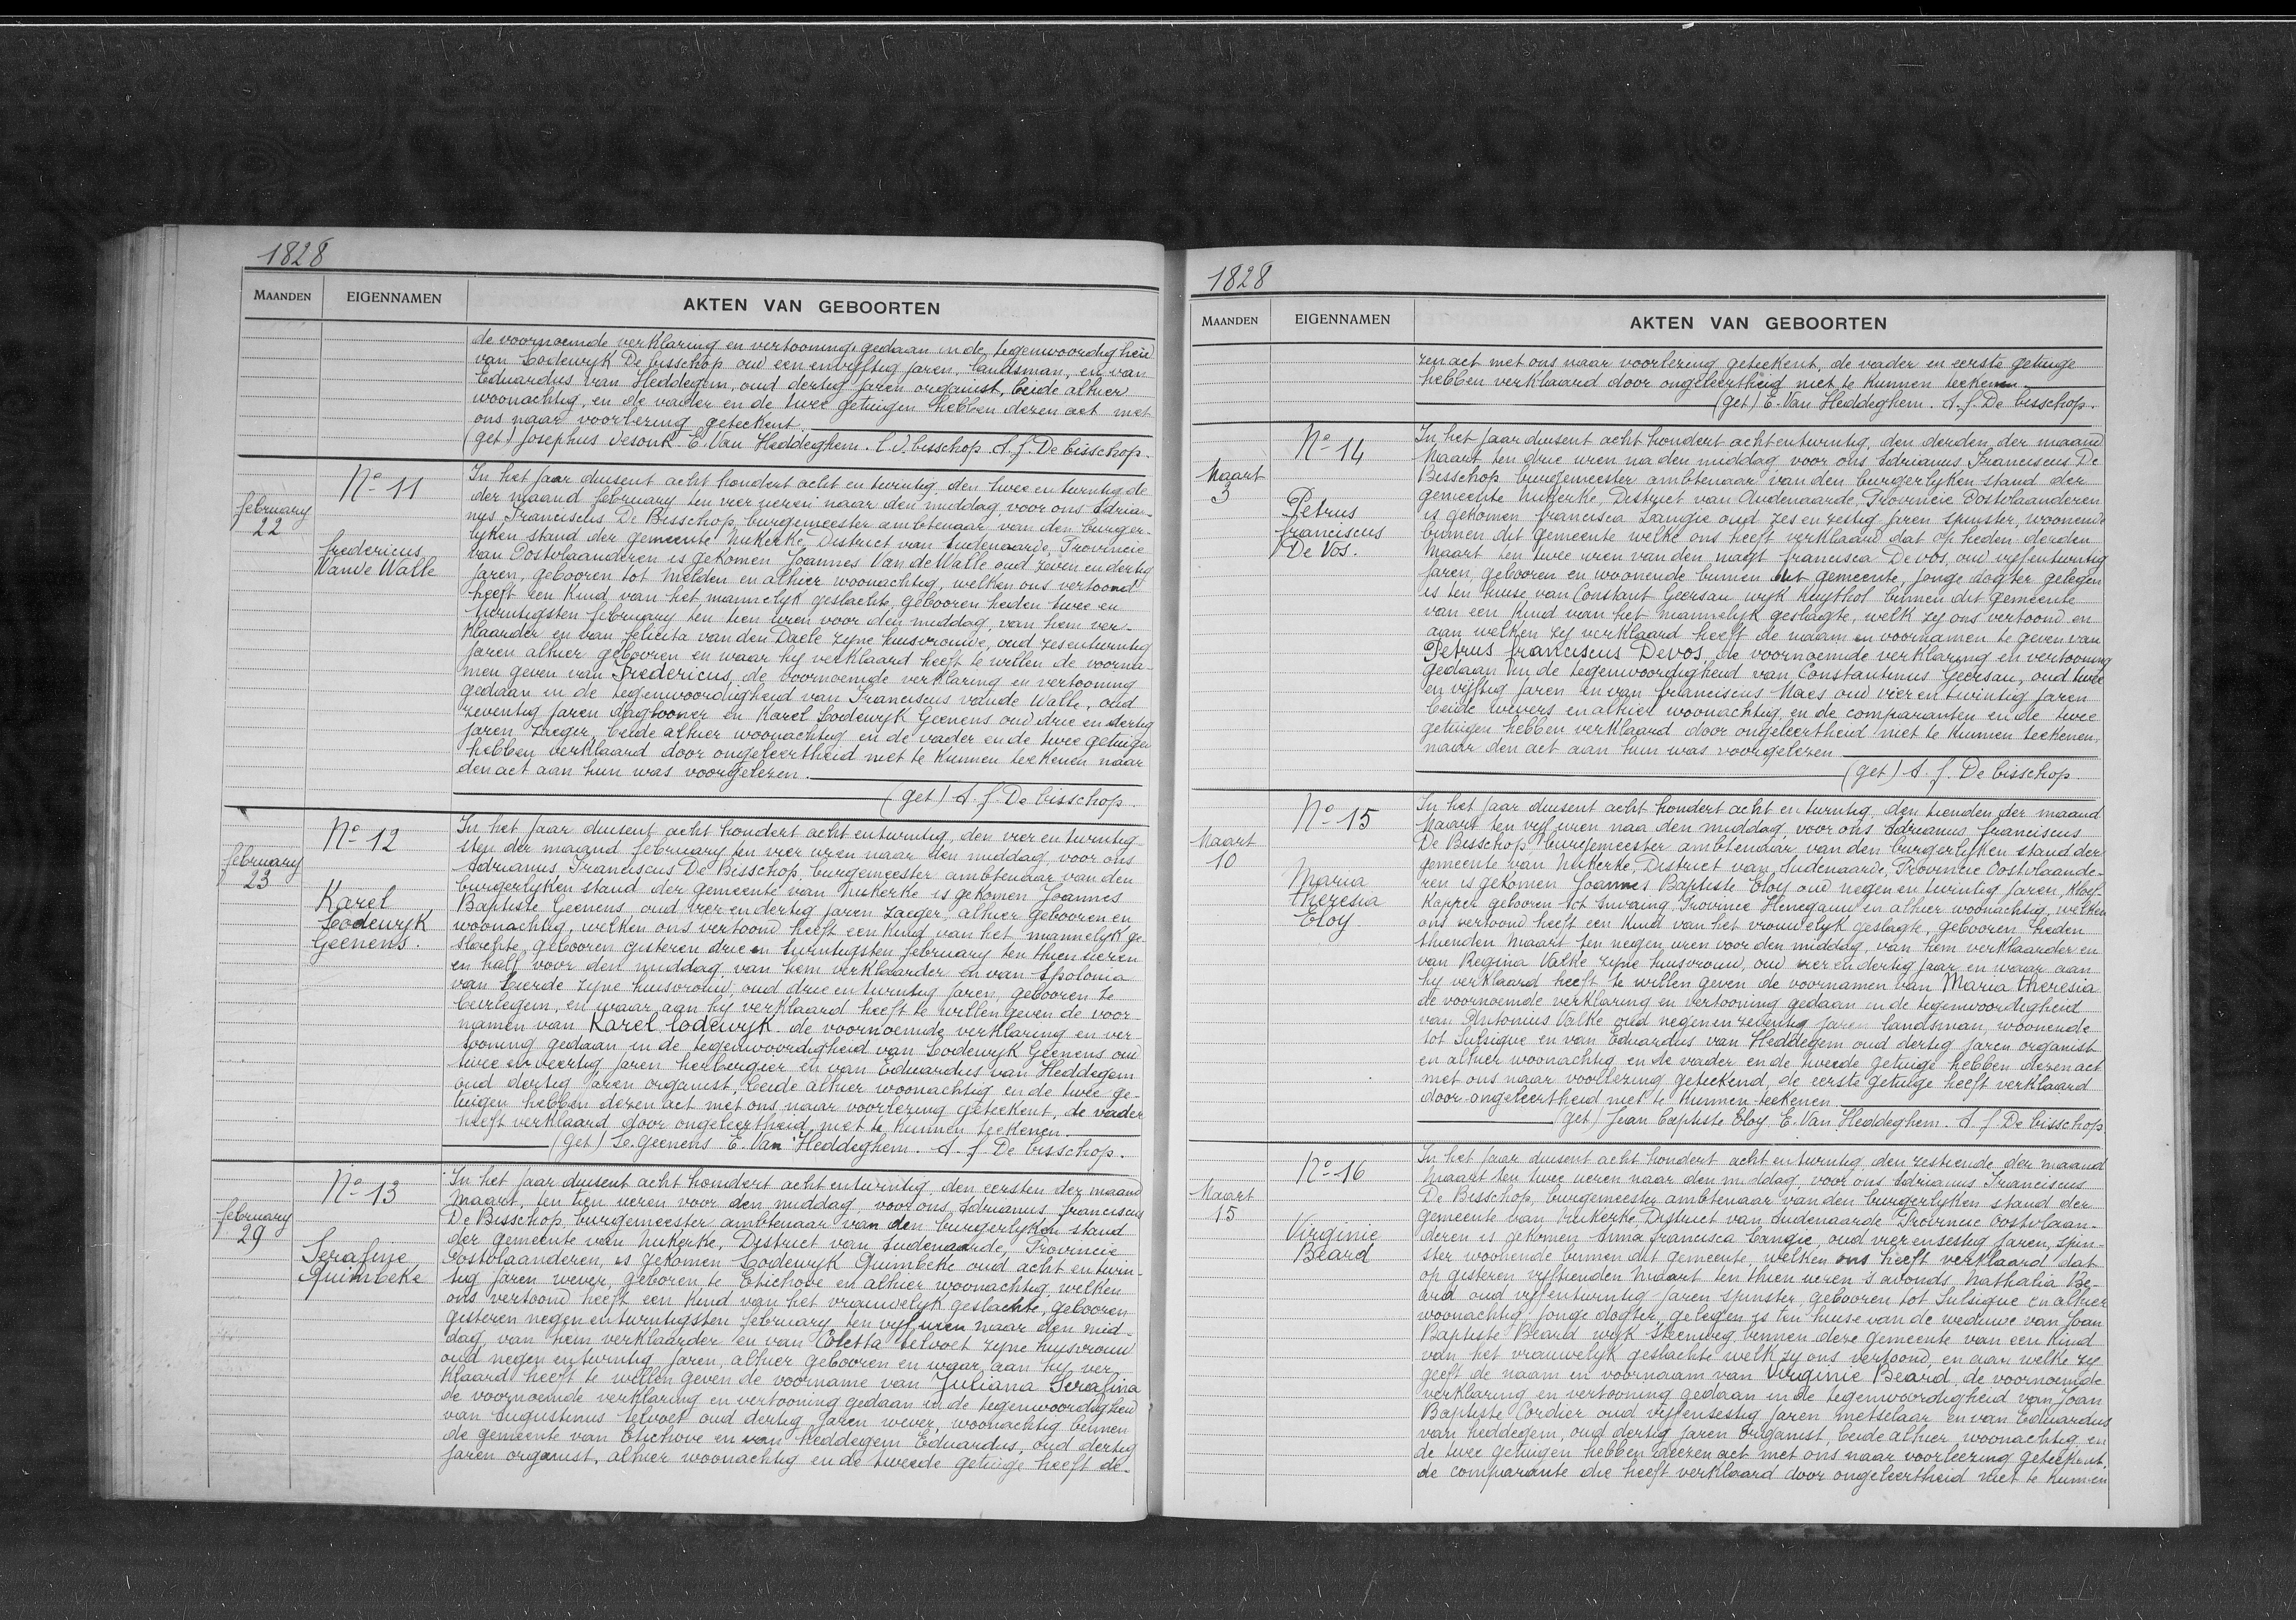 1828
MAANDEN EIGENNAMEN AKTEN VAN GEBOORTEN
de voornoemde verklaring en vertooning gedaan in de tegenwoordigheid
van Lodewyk De bisschop oud een en vyftig jaren, landsman, en van
Eduardus van Heddegem, oud dertig jaren organist, beide alhier
woonachtig, en de vader en de twee getuigen hebben dezen act met
ons naar voorlezing geteekent.
(get) Josephus E. Van Heddeghem. L. D. bisschop A. f. De bisschop.
No 11
february
22
fredericus
Vande Walle
In het jaar duisent acht hondert acht en twintig, den twee en twintig de
der maand february ten vier ueren naar den middag, voor ons Adria-
nus Franciscus De Bisschop, burgemeester ambtenaar van den burger-
lyken stand der gemeente Nukerke, District van Audenaarde, Provincie
van Oostvlaanderen is gekomen Joannes Van de Walle oud zeven en dertig
jaren, gebooren tot Melden en alhier woonachtig, welken ons vertoond
heeft een Kind van het mannelyk geslachte, gebooren heden twee en
twintigsten february ten tien uren voor den middag, van hem ver-
klaarder en van felicita van den Daele zyne huisvrouwe, oud zesentwintig
jaren alhier gebooren en waar hy verklaard heeft te willen de voorna-
men geven van Fredericus, de voornoemde verklaring en vertooning
gedaan in de tegenwoordigheid van Franciscus vande Walle, oud
zeventig jaren daglooner en Karel Lodewyk Geenens oud drie en dertig
jaren Zaeger, beide alhier woonachtig en de vader en de twee getuigen
hebben verklaard door ongeleertheid niet te kunnen teekenen naar
den act aan hun was voorgelezen.
(get) A. f. De bisschop.
No 12
february
23
Karel
Lodewyk
Geenens.
In het jaar duisent acht hondert acht en twintig, den vier en twintig-
sten der maand february ten vier uren naar den middag, voor ons
Adrianus Franciscus De Bisschop, burgemeester ambtenaar van den
burgerlyken stand der gemeente van Nukerke is gekomen Joannes
Baptiste Geenens, oud vier en dertig jaren Zaeger, alhier gebooren en
woonachtig, welken ons vertoond heeft een Kind van het mannelyk ge-
slachte, gebooren gisteren drie en twintigsten february ten thien ueren
en half voor den middag, van hem verklaarder en van Apolonia
van Lierde zyne huisvrouw, oud drie en twintig jaren, gebooren te
Beirlegem, en waar aan hy verklaard heeft te willen geven de voor-
namen van Karel lodewyk de voornoemde verklaring en ver-
tooning gedaan in de tegenwoordigheid van Lodewyk Geenens oud
twee en veertig jaren herbergier en van Eduardus van Heddegem
oud dertig jaren organist, beide alhier woonachtig en de twee ge-
tuigen hebben dezen act met ons naar voorlezing geteekent, de vader
heeft verklaard door ongeleertheid niet te kunnen teekenen.
(get) L. Geenens E. Van Heddeghem. A. f De bisschop.
No 13
february
29
Serafine
Quimbeke
In het jaar duisent acht hondert acht en twintig, den eersten der maand
Maart, ten tien ueren voor den middag, voor ons Adrianus franciscus
De Bisschop burgemeester ambtenaar van den burgerlyken stand
der gemeente van Nukerke, District van Audenaarde, Provincie
Oostvlaanderen, is gekomen Lodewyk Quimbeke oud acht en twin-
tig jaren wever, geboren te Etichove en alhier woonachtig, welken
ons vertoond heeft een Kind van het vrauwelyk geslachte, gebooren
gisteren negen en twintigsten february ten vyf uren naar den mid-
dag van hem verklaarder en van Coletta Telvoet zyne huysvrouw
oud negen en twintig jaren, alhier gebooren en waar aan hy ver-
klaard heeft te willen geven de voorname van Juliana Serafina
de voornoemde verklaring en vertooning gedaan in de tegenwoordigheid
van Augustinus Telvoet oud dertig jaren wever, woonachtig binnen
de gemeente van Etichove en van Heddegem Eduardus, oud dertig
jaren organist, alhier woonachtig en de tweede getuige heeft de-
1828
MAANDEN EIGENNAMEN AKTEN VAN GEBOORTEN
zen act met ons naar voorlezing geteekent, de vader en eerste getuige
hebben verklaard door ongeleertheid niet te kunnen teekenen
(get) E. Van Heddeghem. A. f. De bisschop.
No 14
Maart
3
Petrus
franciscus
De Vos.
In het jaar duisent acht hondert acht en twintig, den derden der maand
Maart ten drie uren na den middag voor ons Adrianus Franciscus De
Bisschop burgemeester ambtenaar van den burgerlyken stand der
gemeente Nukerke, District van Audenaarde, Provincie Oostvlaanderen
is gekomen francisca Langie oud zes en zestig jaren spinster, woonende
binnen dit gemeente welke ons heeft verklaard dat op heden derden
Maart ten twee uren van den nagt francisca De vos, oud vyfentwintig
jaren, gebooren en woonende binnen dit gemeente, jonge dogter gelegen
is ten huise van Constant Geersau wyk Huythol binnen dit gemeente
van een Kind van het mannelyk geslagte, welk zy ons vertoond en
aan welken zy verklaard heeft de naam en voornamen te geven van
Petrus franciscus Devos, de voornoemde verklaring en vertooning
gedaan in de tegenwoordigheid van Constantinus Geersau, oud twee
en vyftig jaren en van franciscus Maes oud vier en twintig jaren
beide wevers en alhier woonachtig, en de comparanten en de twee
getuigen hebben verklaard door ongeleertheid niet te kunnen teekenen,
naar den act aan hun was voorgelezen
(get) A. f. De bisschop.
No 15
Maart
10
Maria
Theresia
Eloy
In het jaar duisent acht hondert acht en twintig, den tienden der maand
Maart ten vyf uren naa den middag, voor ons Adrianus franciscus
De Bisschop burgemeester ambtenaar van den burgerlyken stand der
gemeente van Nukerke, District van Audenaarde, Provincie Oostvlaande-
ren is gekomen Joannes Baptiste Eloy oud negen en twintig jaren,
Kapper gebooren tot Provincie Henegauw en alhier woonachtig, welken
ons vertoond heeft een Kind van het vrouwelyk geslagte, gebooren heden
thienden Maart ten negen uren voor den middag, van hem verklaarder en
van Regina Valke zyne huisvrouw, oud vier en dertig jaar en waar aan
hy verklaard heeft te willen geven de voornamen van Maria theresia
de voornoemde verklaring en vertooning gedaan in de tegenwoordigheid
van Antonius Valke oud negen en zeventig jaren landsman, woonende
tot Sulsique en van Eduardus van Heddegem oud dertig jaren organist
en alhier woonachtig en de vader en de tweede getuige hebben dezen act
met ons naar voorlezing geteekend, de eerste getuige heeft verklaard
door ongeleertheid niet te kunnen teekenen.
(get) Jean Baptiste Eloy E. Van Heddeghem. A. f De bisschop
No 16
Maart
15
Virginie
Beard
In het jaar duisent acht hondert acht en twintig, den zestiende der maand
Maart ten twee ueren naar den middag, voor ons Adrianus Franciscus
De Bisschop, burgemeester ambtenaar van den burgerlyken stand der
gemeente van Nukerke, District van Audenaarde Provincie Oostvlaan-
deren is gekomen Anna francisca Langie, oud vier en sestig jaren, spin-
ster woonende binnen dit gemeente, welken ons heeft verklaard dat
op gisteren vyftienden Maart ten thien ueren s avonds Nathalia Be-
ard oud vyfentwintig jaren spinster, gebooren tot Sulsique en alhier
woonachtig, jonge dogter, gelegen is ten huise van de weduwe van Joan
Baptiste Beard wyk Steenweg, binnen deze gemeente van een Kind
van het vrauwelyk geslachte welk zy ons vertoond, en aan welke zy
geeft de naam en voornaam van Virginie Beard, de voornoemde
verklaring en vertooning gedaan in de tegenwoordigheid van Joan
Baptiste Cordier oud vyfensestig jaren metselaar en van Eduardus
van heddegem, oud dertig jaren Organist, beide alhier woonachtig en
de twee getuigen hebben deezen act met ons naar voorleezing geteekent,
de comparante die heeft verklaard door ongeleertheid niet te kunnen